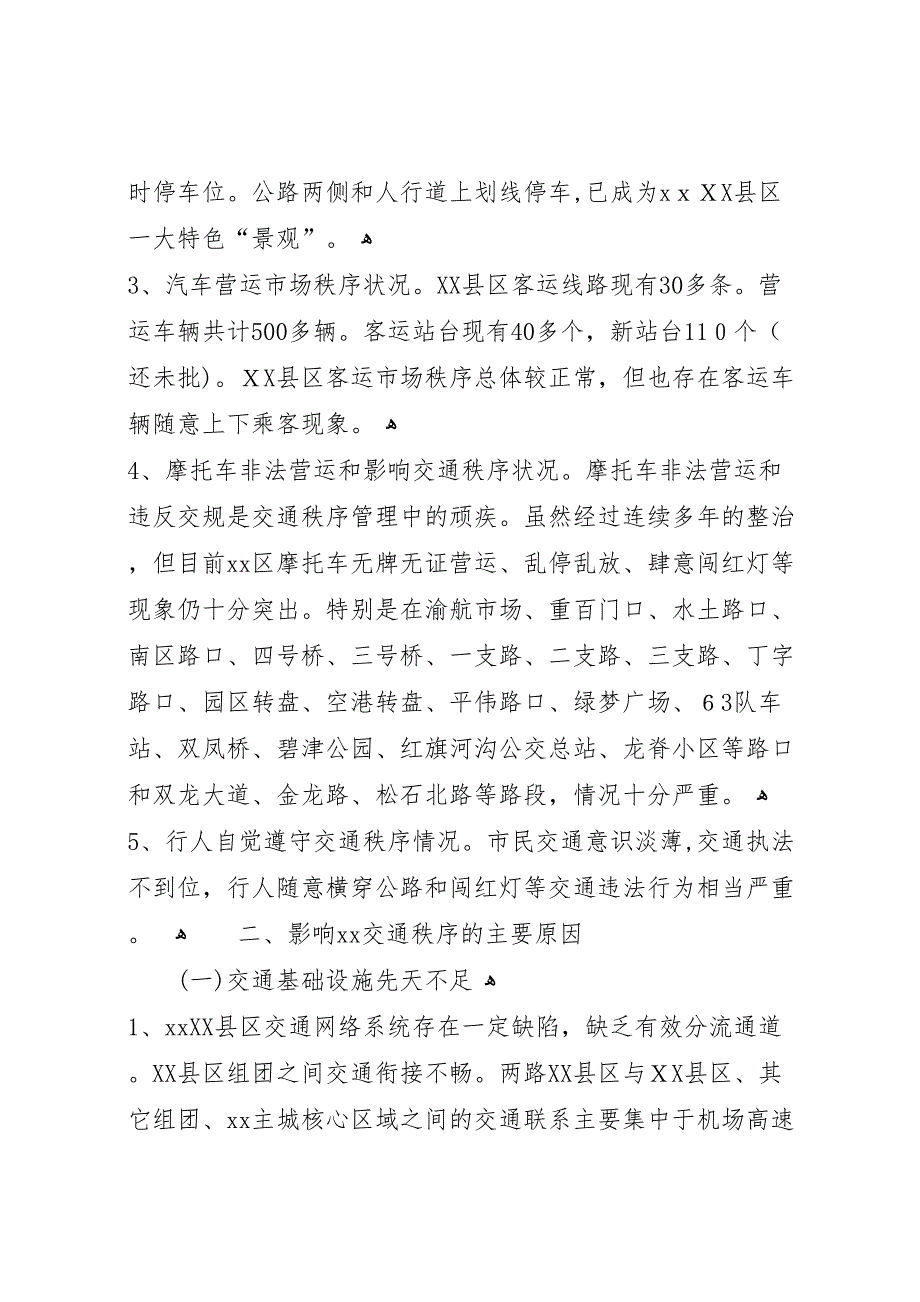 时停车位。公路两侧和人行道上划线停车,已成为xｘＸX县区
一大特色“景观”。 ﻫ
3、汽车营运市场秩序状况。XX县区客运线路现有30多条。营
运车辆共计500多辆。客运站台现有40多个，新站台11０个（
还未批)。ＸX县区客运市场秩序总体较正常，但也存在客运车
辆随意上下乘客现象。 ﻫ
4、摩托车非法营运和影响交通秩序状况。摩托车非法营运和
违反交规是交通秩序管理中的顽疾。虽然经过连续多年的整治
，但目前xx区摩托车无牌无证营运、乱停乱放、肆意闯红灯等
现象仍十分突出。特别是在渝航市场、重百门口、水土路口、
南区路口、四号桥、三号桥、一支路、二支路、三支路、丁字
路口、园区转盘、空港转盘、平伟路口、绿梦广场、６3队车
站、双凤桥、碧津公园、红旗河沟公交总站、龙脊小区等路口
和双龙大道、金龙路、松石北路等路段，情况十分严重。 ﻫ
5、行人自觉遵守交通秩序情况。市民交通意识淡薄,交通执法
不到位，行人随意横穿公路和闯红灯等交通违法行为相当严重
。 ﻫ 二、影响xx交通秩序的主要原因
(一)交通基础设施先天不足 ﻫ
1、xxXX县区交通网络系统存在一定缺陷，缺乏有效分流通道
。XX县区组团之间交通衔接不畅。两路XX县区与ＸX县区、其
它组团、xx主城核心区域之间的交通联系主要集中于机场高速